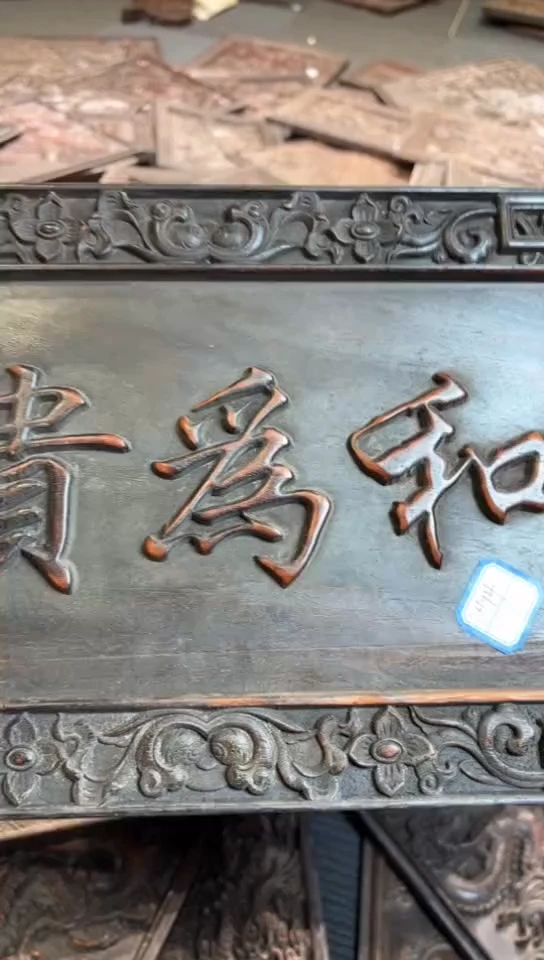 和爲貴